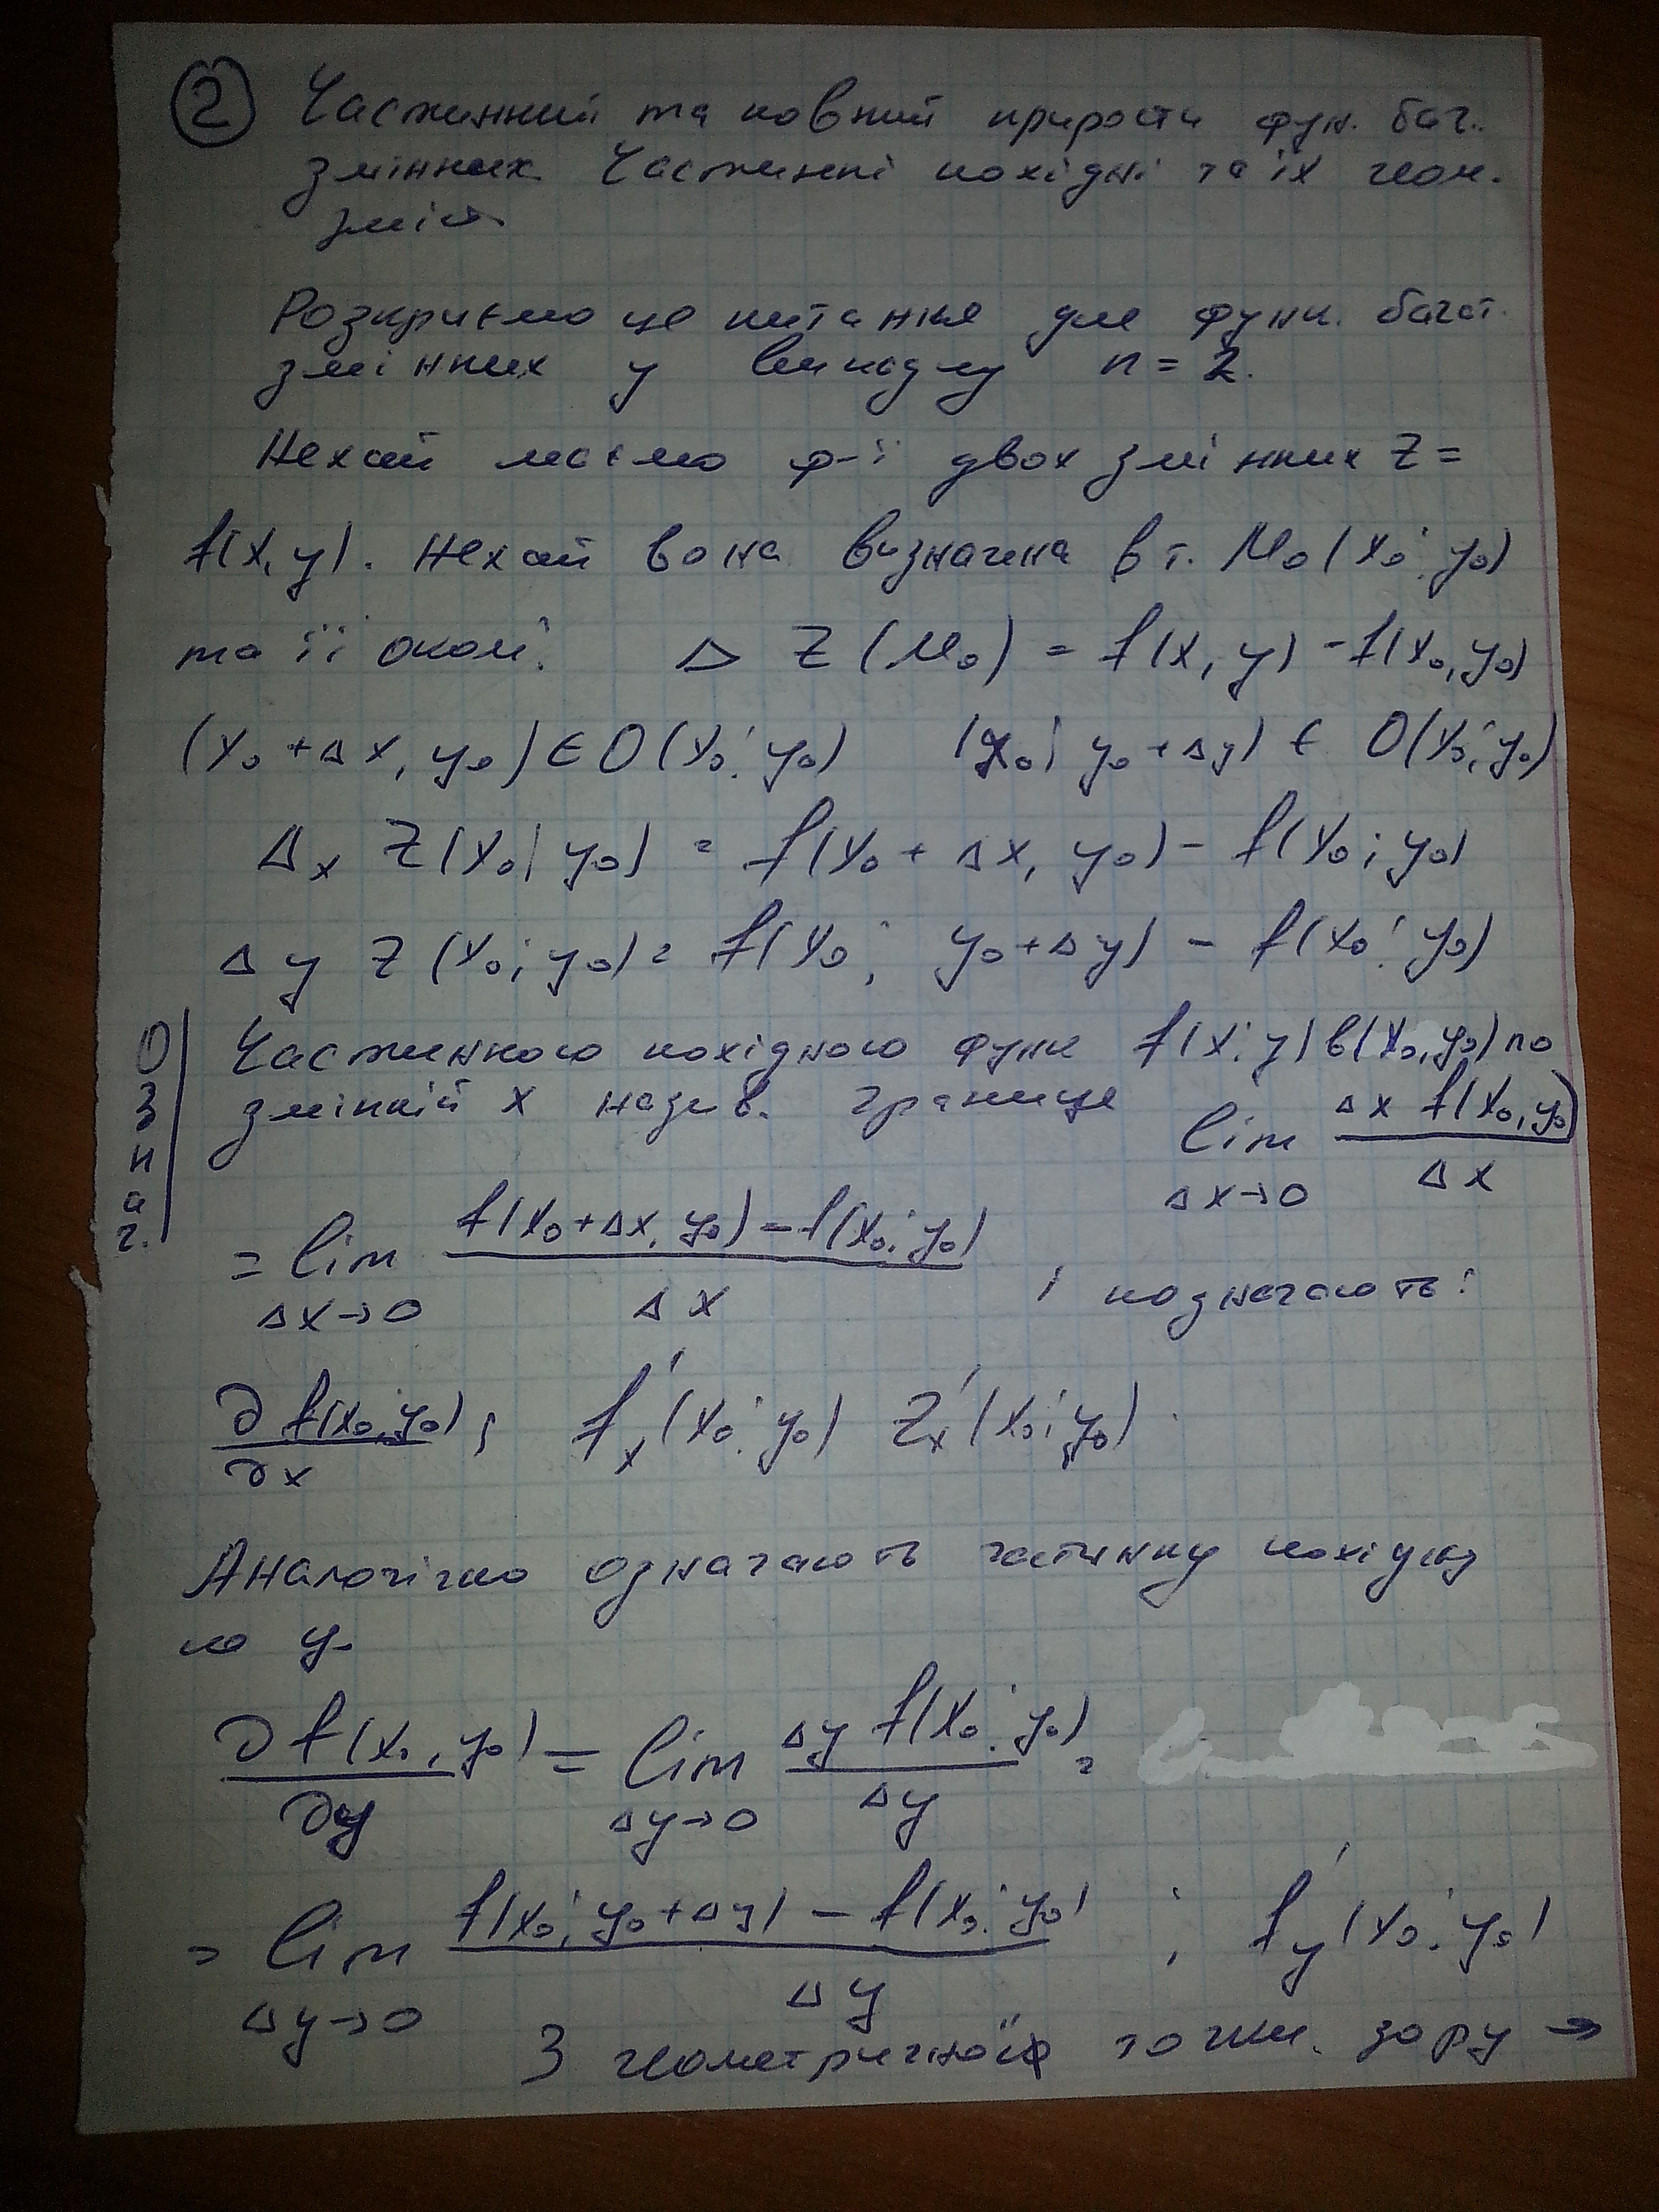 ② Частинний та повний прирости фун. баг.
змінних. Частинні похідні та їх геом.
зміст
Розкриємо це питання для функ. багат.
змінних у випадку n = 2.
Нехай маємо ф-ї двох змінних z =
f(x, y). Нехай вона визначена в т. M₀(x₀; y₀)
та її околі. Δ z (M₀) = f(x, y) - f(x₀, y₀)
(x₀ + Δx, y₀) ∈ O(x₀; y₀) (x₀; y₀ + Δy) ∈ O(x₀; y₀)
Δₓ z(x₀; y₀) = f(x₀ + Δx, y₀) - f(x₀; y₀)
Δy z(x₀; y₀) = f(x₀; y₀ + Δy) - f(x₀; y₀)
Означ. Частинною похідною функ f(x; y) в (x₀, y₀) по
змінній x назив. границю lim Δx→0 Δx f(x₀, y₀) / Δx
= lim Δx→0 f(x₀ + Δx, y₀) - f(x₀; y₀) / Δx і позначають:
∂f(x₀, y₀) / ∂x ; f'ₓ(x₀; y₀) z'ₓ(x₀; y₀)
Аналогічно означають частинну похідну
по y.
∂f(x₀, y₀) / ∂y = lim Δy→0 Δy f(x₀; y₀) / Δy =
= lim Δy→0 f(x₀; y₀ + Δy) - f(x₀; y₀) / Δy ; f'y(x₀; y₀)
З геометричної точки. зору →